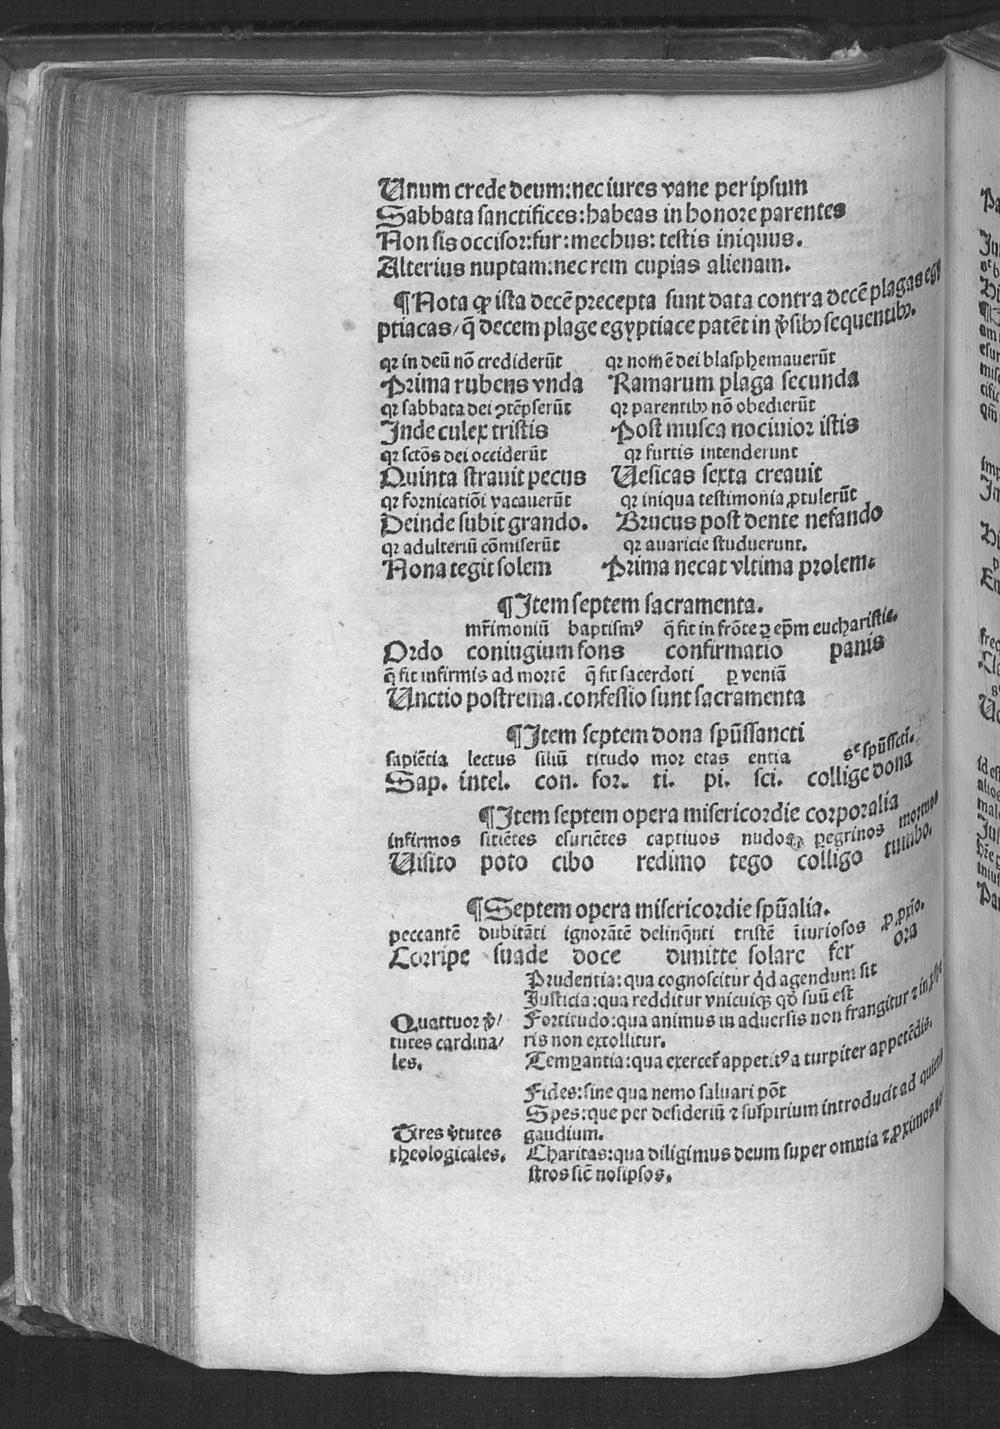 Unum crede deum:nec iures vane per ipsum
Sabbata sanctifices:habeas in honore parentes
Non sis occisor:fur:mechus:testis iniquus.
Alterius nuptam:nec rem cupias alienam.
¶Nota ꝙ ista decē precepta sunt data contra decē plagas egy
ptiacas/q̄ decem plage egyptiace patēt in v̓sibꝰ sequentibꝰ.
qꝛ in deū nō crediderūt qꝛ nomē dei blasphemauerūt
Prima rubens vnda Ramarum plaga secunda
qꝛ sabbata dei ꝯtēpserūt qꝛ parentibꝰ nō obedierūt
Inde culex tristis Post musca nociuior istis
qꝛ sctōs dei occiderūt qꝛ furtis intenderunt
Quinta strauit pecus Uesicas sexta creauit
qꝛ fornicatiōi vacauerūt qꝛ iniqua testimonia ꝓtulerūt
Deinde subit grando. Brucus post dente nefando
qꝛ adulteriū cōmiserūt qꝛ auaricie studuerunt.
Nona tegit solem Prima necat vltima prolem.
¶Item septem sacramenta.
mr̄imoniū baptismꝰ q̄ fit in frōte ꝑ ep̄m eucharistie.
Ordo coniugium fons confirmatio panis
q̄ fit infirmis ad mortē q̄ fit sacerdoti ꝑ veniā
Unctio postrema.confessio sunt sacramenta
¶Item septem dona spūssancti
sapiētia lectus siliū titudo mor etas entia sᶜ spūsscti.
Sap. intel. con. for. ti. pi. sci. collige dona
¶Item septem opera misericordie corporalia
infirmos sitiētes esuriētes captiuos nudos ꝑegrinos mortuos
Uisito poto cibo redimo tego colligo tumbo.
¶Septem opera misericordie spūalia.
peccantē dubitāti ignorātē delinq̄nti tristē iniuriosos ꝓ ꝓxio.
Corripe suade doce dimitte solare fer ora
Prudentia:qua cognoscitur q̓d agendum sit
Justicia:qua redditur vnicuiqꝫ qd̓ suū est
Quattuor v̓/ Fortitudo:qua animus in aduersis non frangitur ⁊ in ꝓspe
tutes cardina/ ris non extollitur.
les. Temꝑantia:qua exercet̄ appetitꝰ a turpiter appetēdis.
Fides:sine qua nemo saluari pōt
Spes:que per desideriū ⁊ suspirium introducit ad quietū
Tres v̓tutes gaudium.
theologicales. Charitas:qua diligimus deum super omnia ⁊ ꝓximos no
stros sic̄ nosipsos.